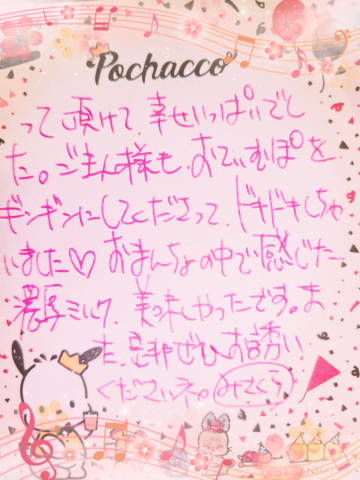 Pochacco
って頂けて、幸せいっぱいでし
た。ご主人様も、おてぃむぽを
ギンギンにしてくださって、ドキドキしちゃ
いました♡ おまんちょの中で感じた
濃厚ミルク、美味しかったです。ま
た、是非ぜひお誘い
くださいネ。みさくら